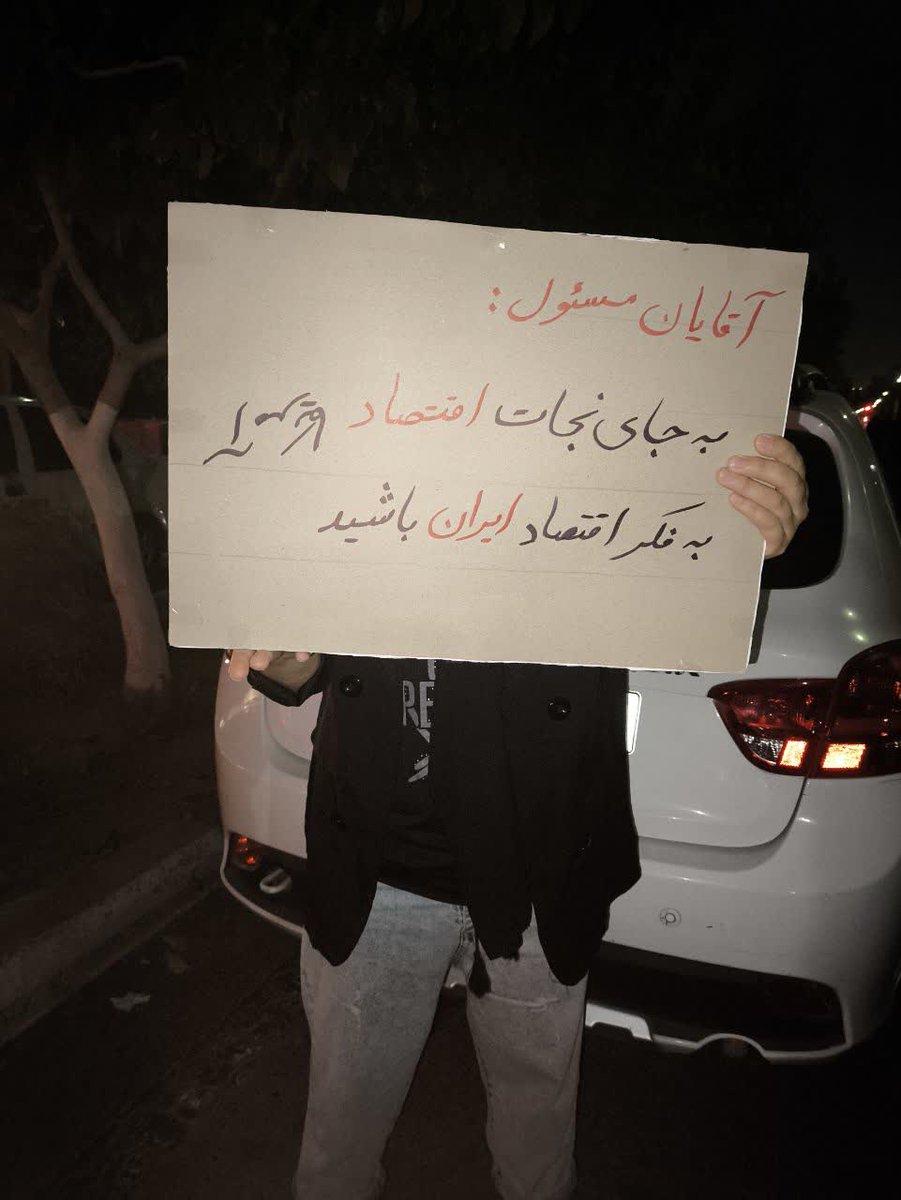 آقایان مسئول:
به جای نجات اقتصاد
به فکر اقتصاد ایران باشید
RE